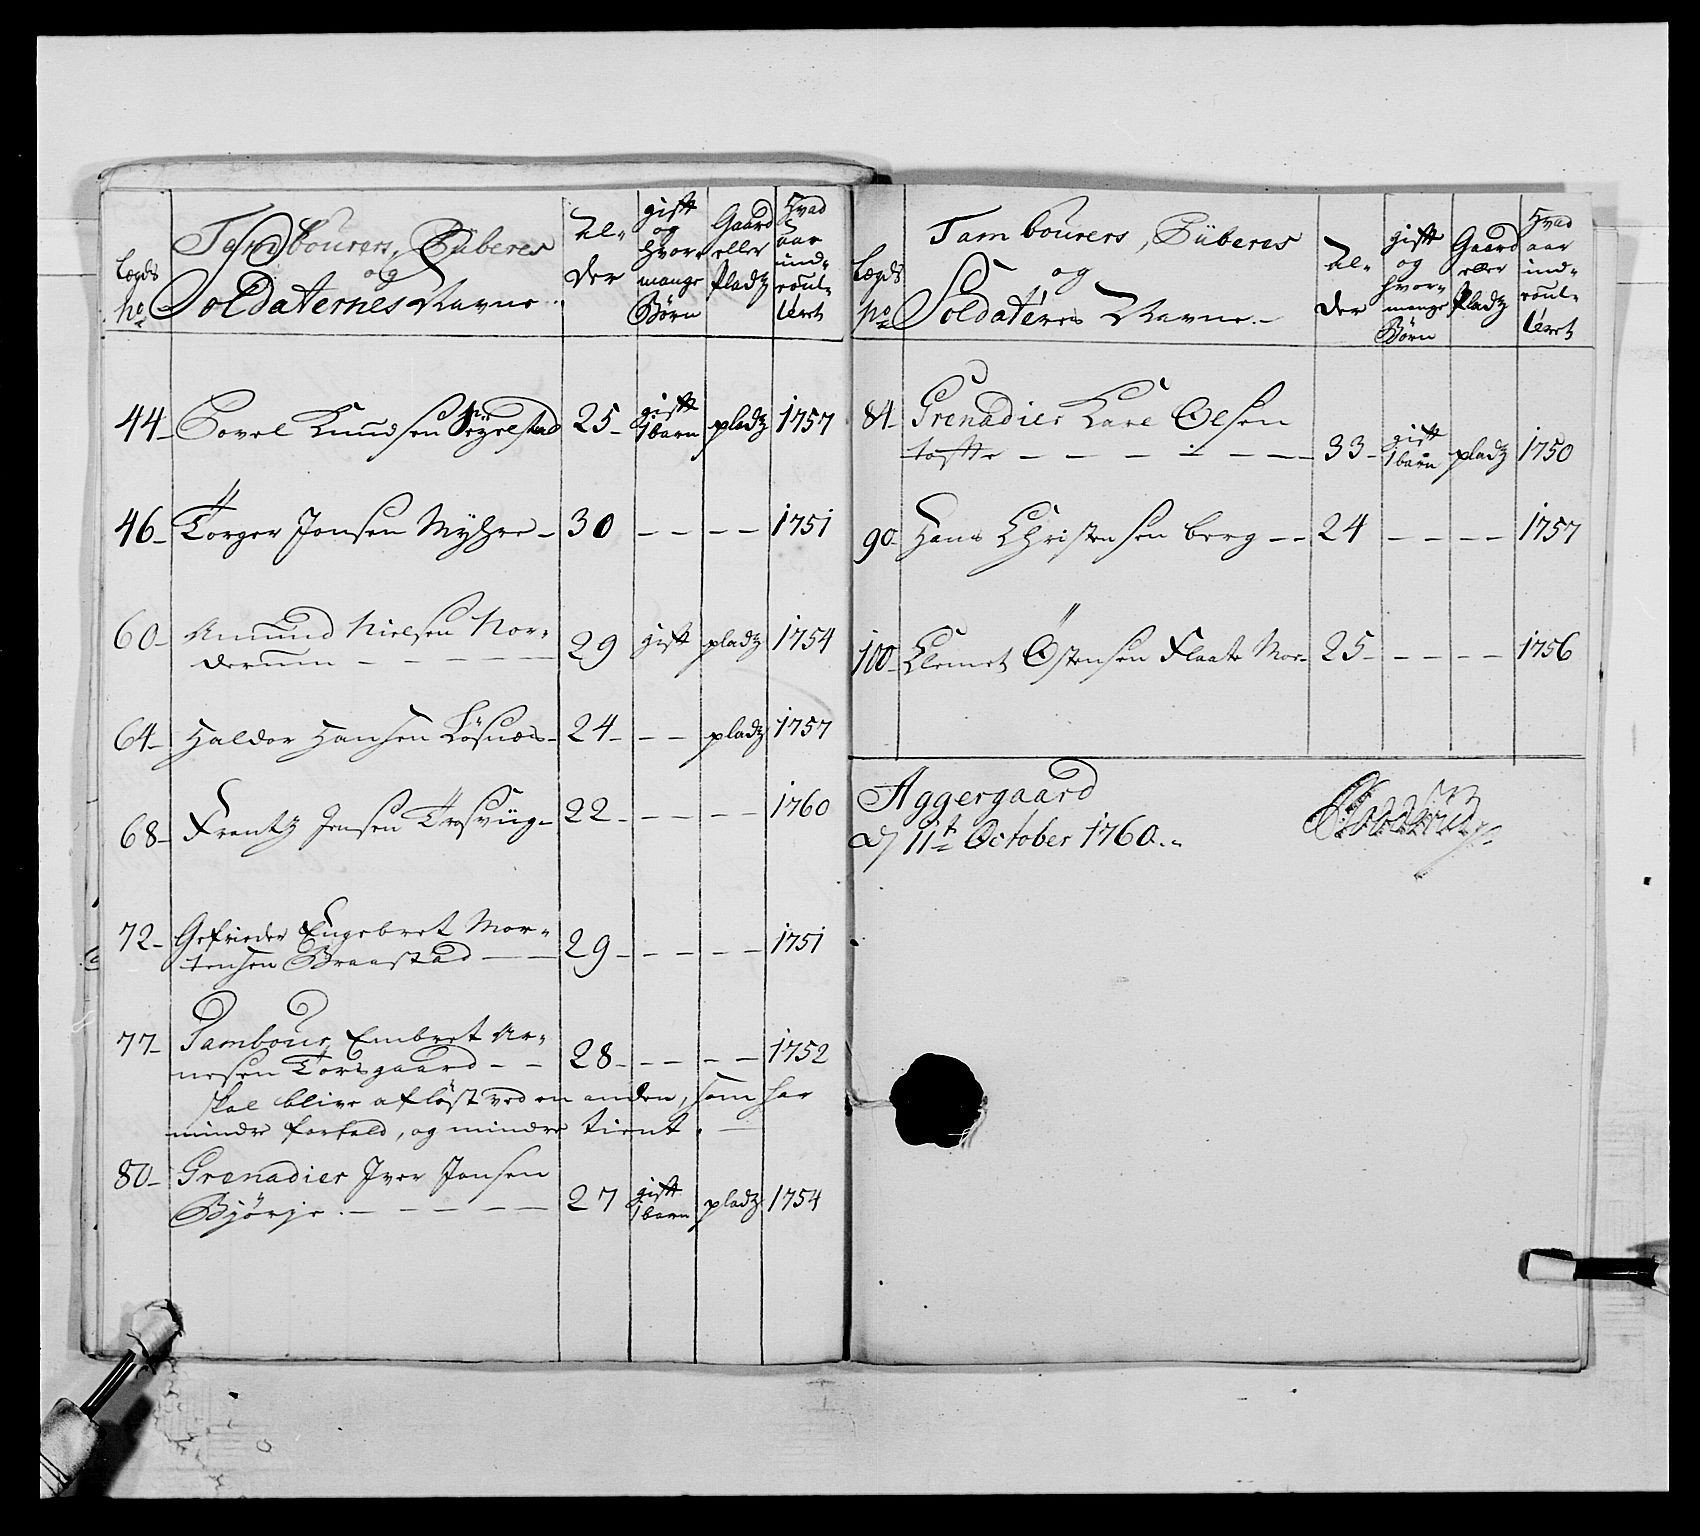 Lægds No
Tambourers, Püberes
og
Soldaternes Navne
Al-
der
gift
og
hvor-
mange
Børn
Gaard
eller
Pladz
Hvad
aar
ind-
roul-
leret
44 Povel Knudsen 25 gift 1 barn pladz 1757
46 Torger Jonsen Myhre 30 1751
60 Amund Nielsen Nor-
derum 29 gift pladz 1754
64 Haldor Hansen Løsnæs 24 pladz 1757
68 Frantz Jensen 22 1760
72 Gefrieder Engebret Mor-
tensen Braastad 29 1751
77 Tambour Embret Ar-
nesen Torsgaard 28 1752
skal blive afløst ved en anden, som har
mindre forfald, og mindre tient.
80 Grenadier Iver Jonsen
Bjørge 27 gift 1 barn pladz 1754
Lægds No
Tambourers, Püberes
og
Soldateres Navne
Al-
der
gift
og
hvor-
mange
Børn
Gaard
eller
Pladz
Hvad
aar
ind-
roul-
leret
84 Grenadier Lars Olsen
tofte 33 gift 1 barn pladz 1750
90 Hans Christensen berg 24 1757
100 Clemet Östensen Flaate Moe 25 1756
Aggergaard
d 11te October 1760